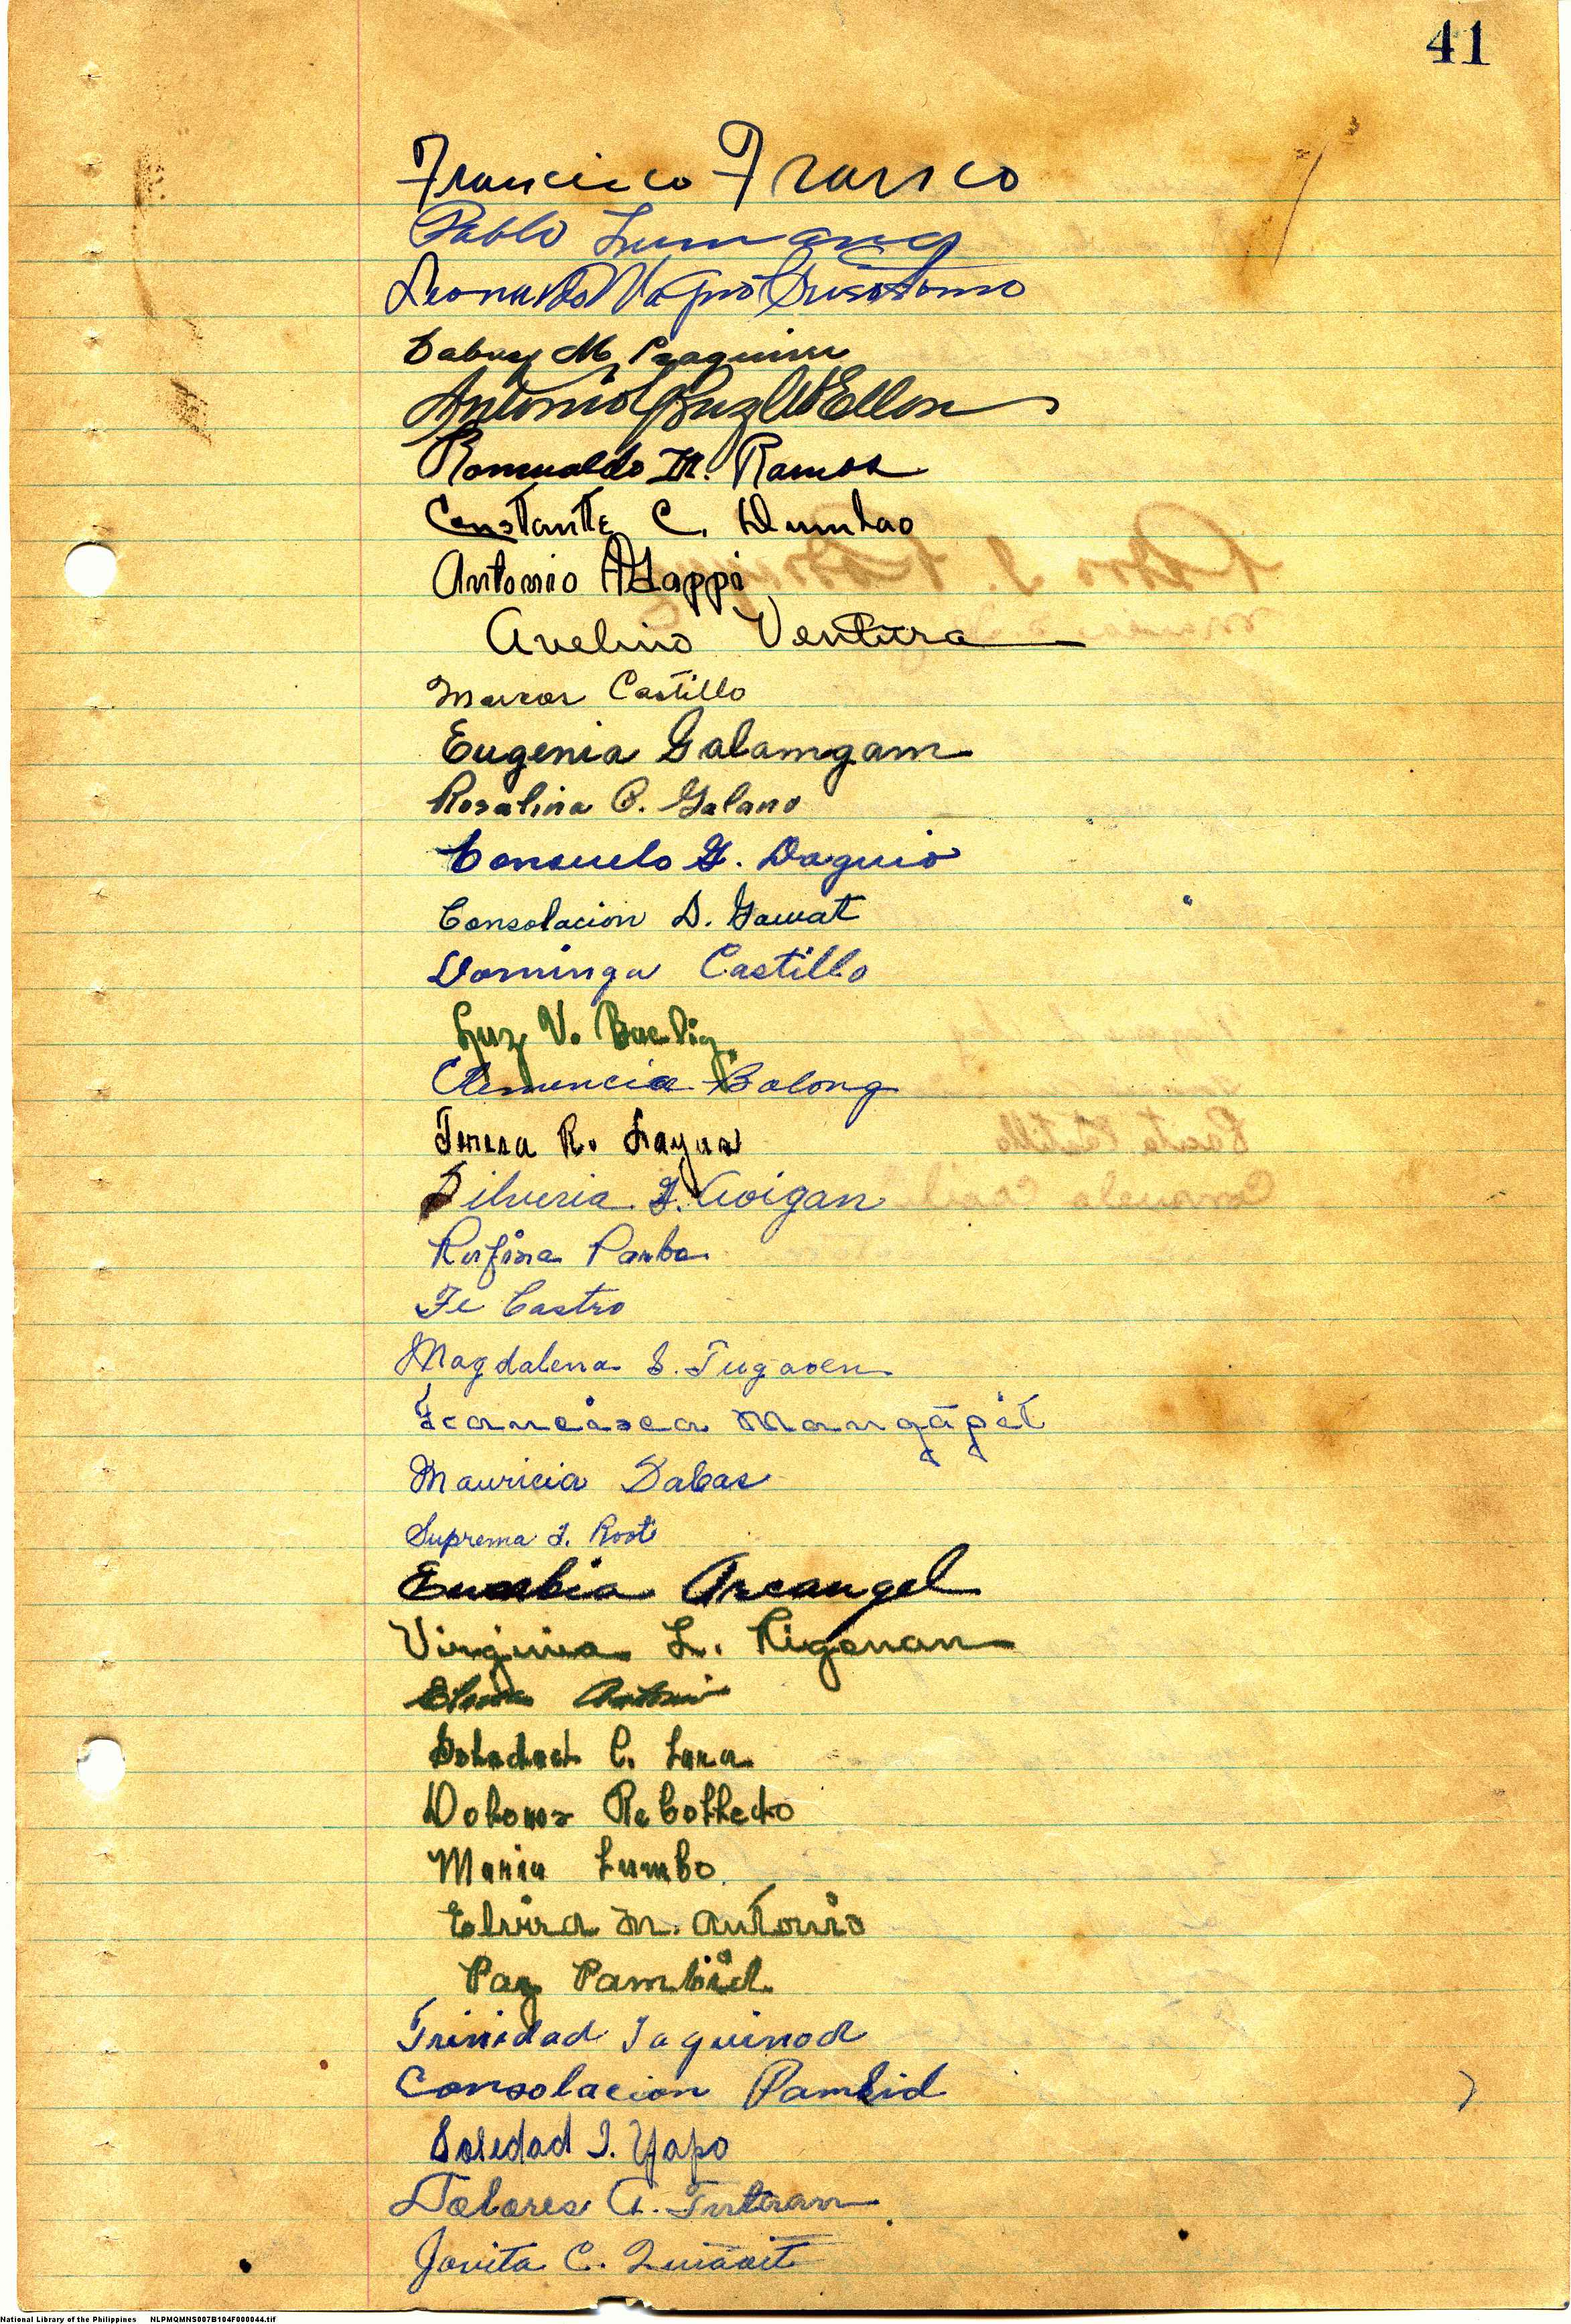 41
Francisco Fransco
Pablo Lumang
Leonardo Crisostomo
M.
Antonio Cruz
Romualdo M. Ramos
Constante C. Dumlao
Antonio Alappi
Avelino Ventura
Marcos Castillo
Eugenia Galamgam
Rosalina C. Galano
Consuelo G. Daguio
Consolacion D. Gawat
Dominga Castillo
Luz V.
Clemencia Balong
Teresa R. Layua
Silveria G. Coigan
Rufina Pamba
Fe Castro
Magdalena S. Tugaoen
Francisca Mangāpit
Mauricia Dabas
Suprema I. Root
Eusebia Arcangel
Virginia L. Rigonan
Antonio
Soledad C. Lara
Dolores Rebolledo
Maria Lumbo
Elvira M. Antonio
Paz Pambid
Trinidad Taguinod
Consolacion Pambid
Soledad I. Yapo
Dolores A.
Jovita C.
National Library of the Philippines NLPMQMNS007B104F000044.tif